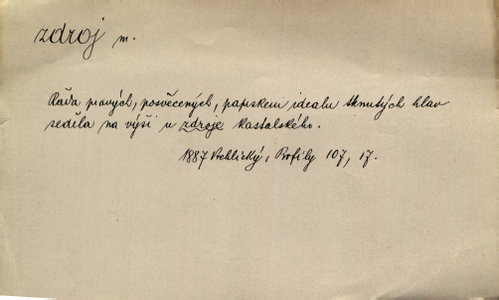 zdroj m.
Řada pravých, posvěcených, paprskem idealu tknutých hlav
sedíla na výši u zdroje kastalského.
1887 Vrchlický, Profily 107, 17.